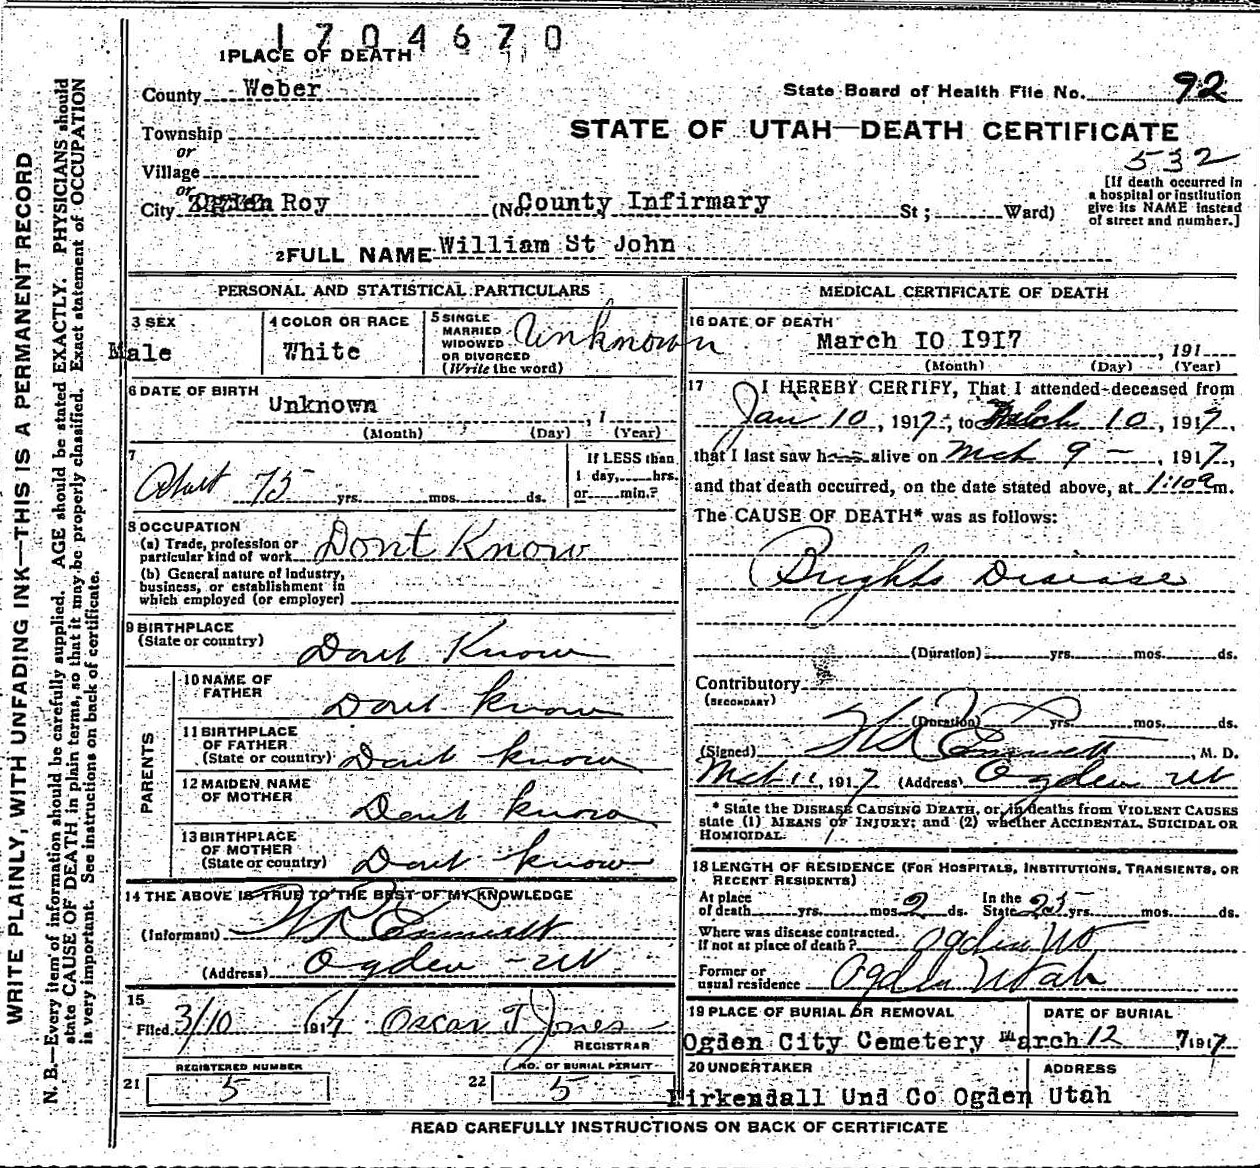 1704670
1 PLACE OF DEATH
County Weber
State Board of Health File No. 92
Township
or
STATE OF UTAH—DEATH CERTIFICATE
532
Village
or
City Ogden Roy (No. County Infirmary St; Ward)
[If death occurred in
a hospital or institution
give its NAME instead
of street and number.]
2 FULL NAME William St John
PERSONAL AND STATISTICAL PARTICULARS
3 SEX
Male
4 COLOR OR RACE
White
5 SINGLE
MARRIED
WIDOWED
OR DIVORCED
(Write the word)
Unknown
6 DATE OF BIRTH
Unknown , 1
(Month) (Day) (Year)
7
About 75 yrs. mos. ds.
If LESS than
1 day, hrs.
or min.?
8 OCCUPATION
(a) Trade, profession or
particular kind of work Dont Know
(b) General nature of industry,
business, or establishment in
which employed (or employer)
9 BIRTHPLACE
(State or country) Dont Know
PARENTS
10 NAME OF
FATHER Dont know
11 BIRTHPLACE
OF FATHER
(State or country) Dont know
12 MAIDEN NAME
OF MOTHER Dont know
13 BIRTHPLACE
OF MOTHER
(State or country) Dont know
14 THE ABOVE IS TRUE TO THE BEST OF MY KNOWLEDGE
(Informant) Emmett
(Address) Ogden - Ut
15
Filed 3/10 1917 Oscar T Jones
REGISTRAR
REGISTERED NUMBER
21 5
NO. OF BURIAL PERMIT
22 5
MEDICAL CERTIFICATE OF DEATH
16 DATE OF DEATH
March 10 1917 , 191
(Month) (Day) (Year)
17 I HEREBY CERTIFY, That I attended deceased from
Jan 10, 1917, to March 10, 1917,
that I last saw h alive on Mch 9 -, 1917,
and that death occurred, on the date stated above, at 1:10 a m.
The CAUSE OF DEATH* was as follows:
Brights Disease
(Duration) yrs. mos. ds.
Contributory
(SECONDARY)
(Duration) yrs. mos. ds.
(Signed) Emmett, M. D.
Mch 11, 1917 (Address) Ogden Ut
* State the DISEASE CAUSING DEATH, or, in deaths from VIOLENT CAUSES
state (1) MEANS OF INJURY; and (2) whether ACCIDENTAL, SUICIDAL OR
HOMICIDAL.
18 LENGTH OF RESIDENCE (FOR HOSPITALS, INSTITUTIONS, TRANSIENTS, OR
RECENT RESIDENTS)
At place
of death yrs. mos. 2 ds.
In the
State 25 yrs. mos. ds.
Where was disease contracted.
If not at place of death? Ogden Ut
Former or
usual residence Ogden Utah
19 PLACE OF BURIAL OR REMOVAL
Ogden City Cemetery
DATE OF BURIAL
March 12 7, 1917
20 UNDERTAKER
Kirkendall Und Co
ADDRESS
Ogden Utah
READ CAREFULLY INSTRUCTIONS ON BACK OF CERTIFICATE
WRITE PLAINLY, WITH UNFADING INK—THIS IS A PERMANENT RECORD
N. B.—Every item of information should be carefully supplied. AGE should be stated EXACTLY. PHYSICIANS should
state CAUSE OF DEATH in plain terms, so that it may be properly classified. Exact statement of OCCUPATION
is very important. See instructions on back of certificate.